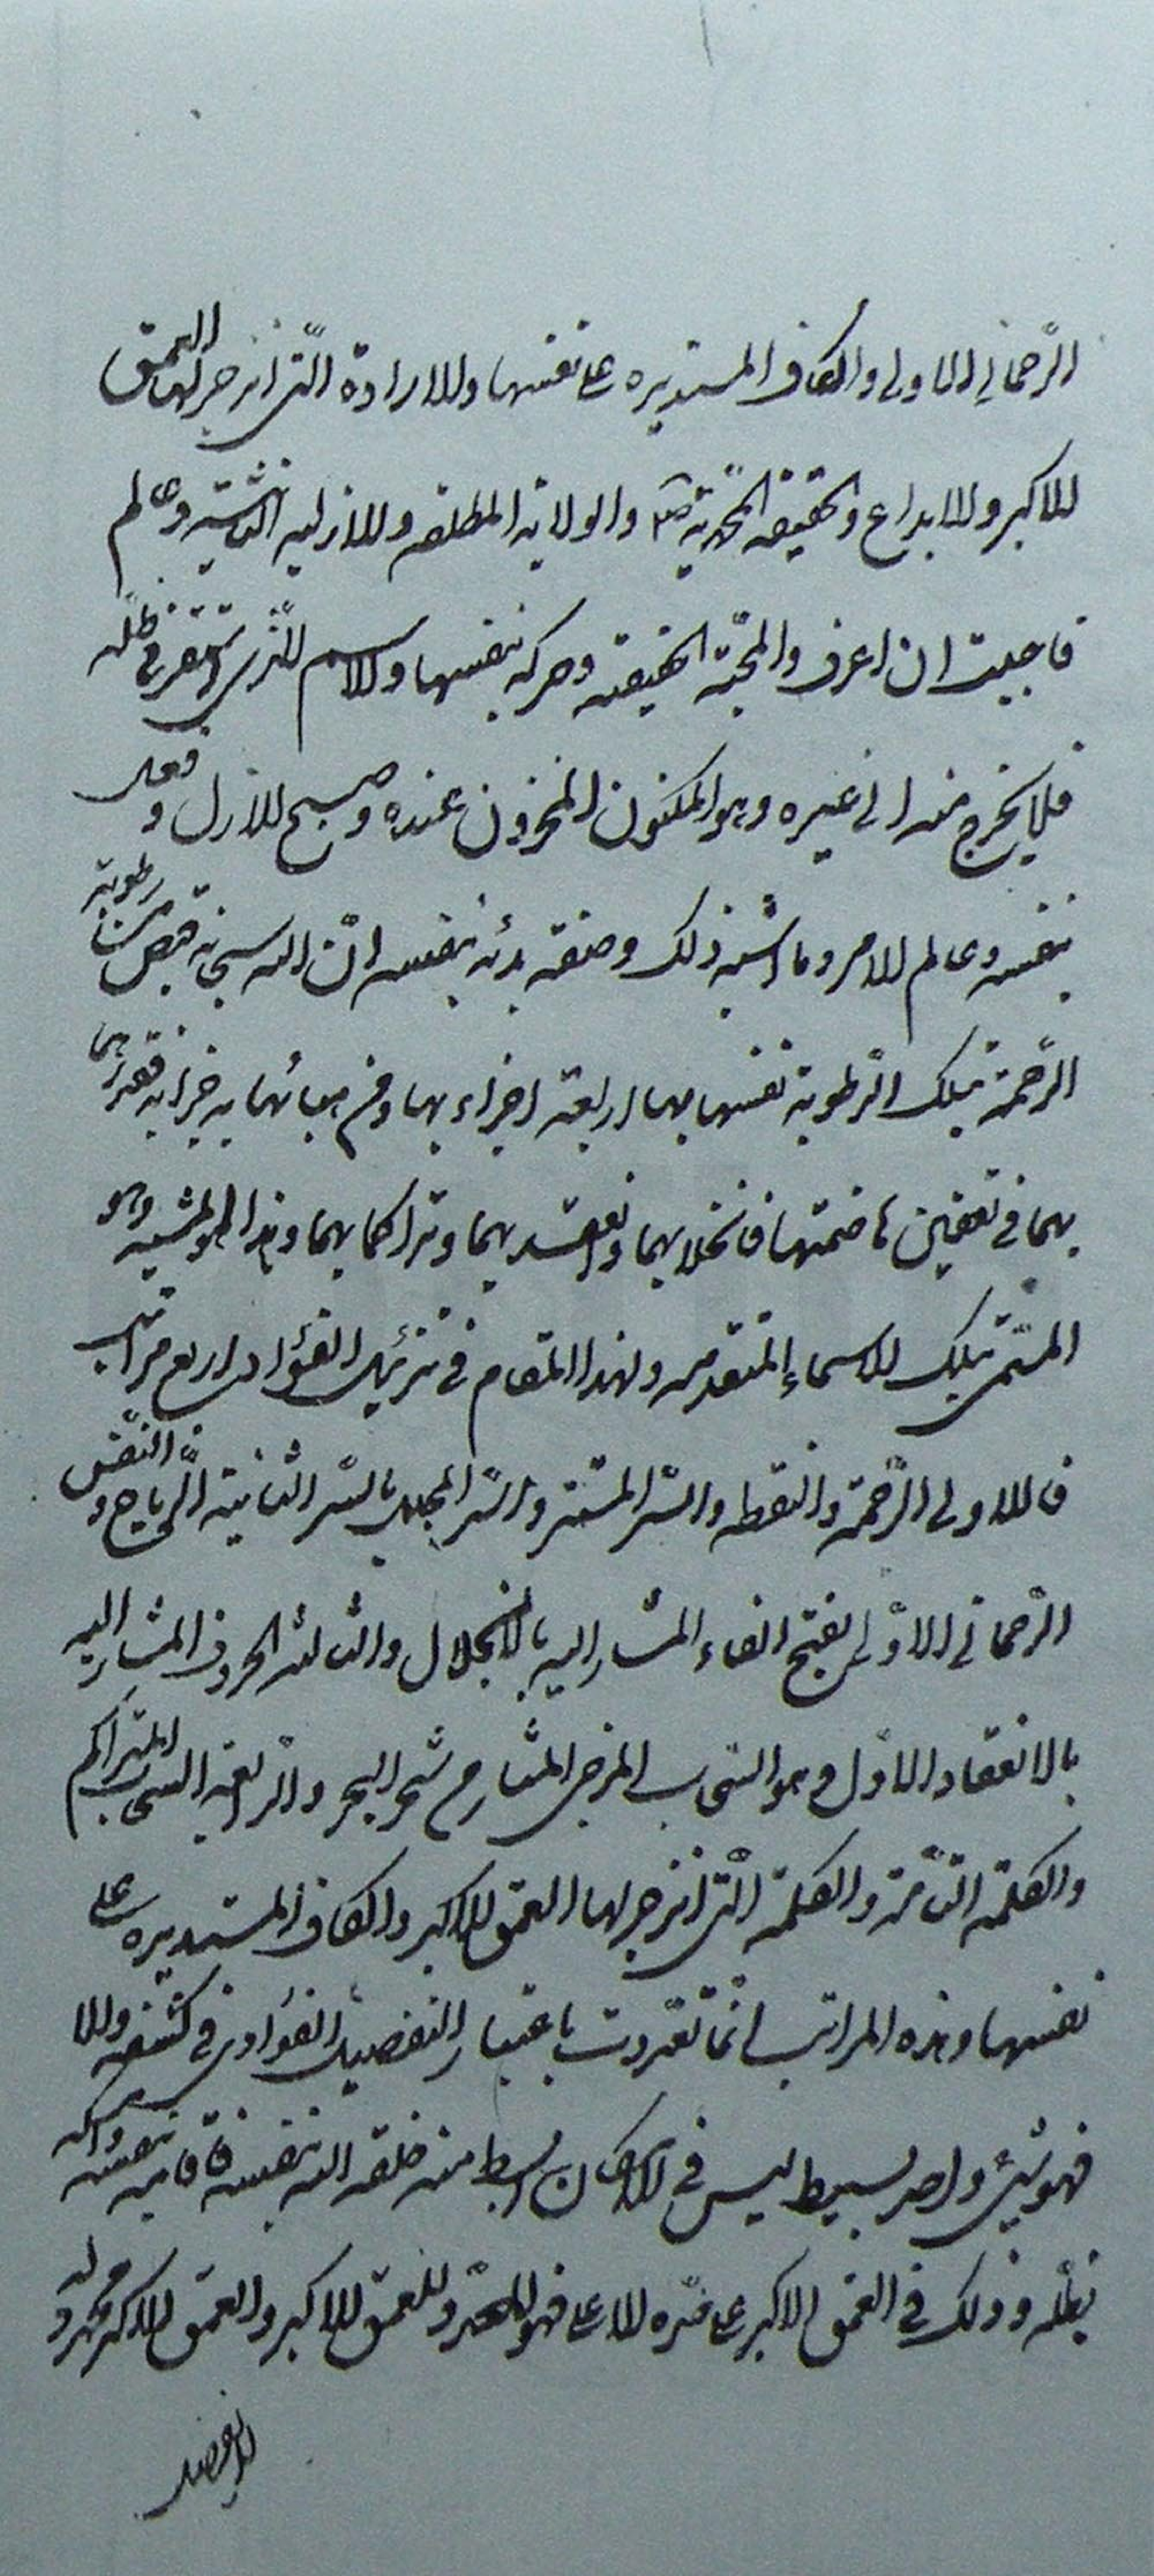 الرّحماني الاولى والكاف المستديره على نفسها والارادة الّتى انزجر لها العمق
الاكبر والابداع والحقيقه المحّمديّة ص والولاية المطلقه والازليه الثانيه وعالم
فاحببت ان اعرف والمحبّة الحقيقيه وحركه بنفسها والاسم الّذى استقر فى ظلّه
فلا يخرج منه الى غيره وهو المكنون المخزون عنده وصبح الازل و فعله
بنفسه وعالم الامر وما اشبه ذلك وصفة بدئه بنفسه انّ الله سبحانه قبض من رطوبة
الرّحمة بتلك الرّطوبة نفسها بها اربعة اجزاء بها ومن هبائها به جزءا به فقدرهما
بهما فى تعفين هاضمتها فانحلا بهما وانعقدا بهما وتراكما بهما وهذا هو المشيه وهو
المسّمى بتلك الاسماء المتقدمه ولهذا المقام فى تنزيل الفؤاد اربع مراتب
فالاولى الرّحمة والنقطه والسّر المستتر والسّر المجلل بالسّر الثانية الرّياح و النّفس
الرّحمانى الاوّلى بفتح الفاء المشار اليه بالانحلال والثالثه الحروف المشار اليه
بالانعقاد الاوّل وهو السّحاب المزجى المثار من شجر البحر والرّابعة السحاب المتراكم
والكلمة التّامّة والكلمة الّتى انزجر لها العمق الاكبر والكاف المستديره على
نفسها وهذه المراتب انّما تعدّدت باعتبار التفصيل الفؤادى فى كشفه والا
فهو شئ واحد بسيط ليس فى الامكان ابسط منه خلقه الله بنفسه فاقامه بنفسه وامسكه
بظلّه وذلك فى العمق الاكبر على قدره لا على فهو للعمق الاكبر والعمق الاكبر محدود له
لا يفضل